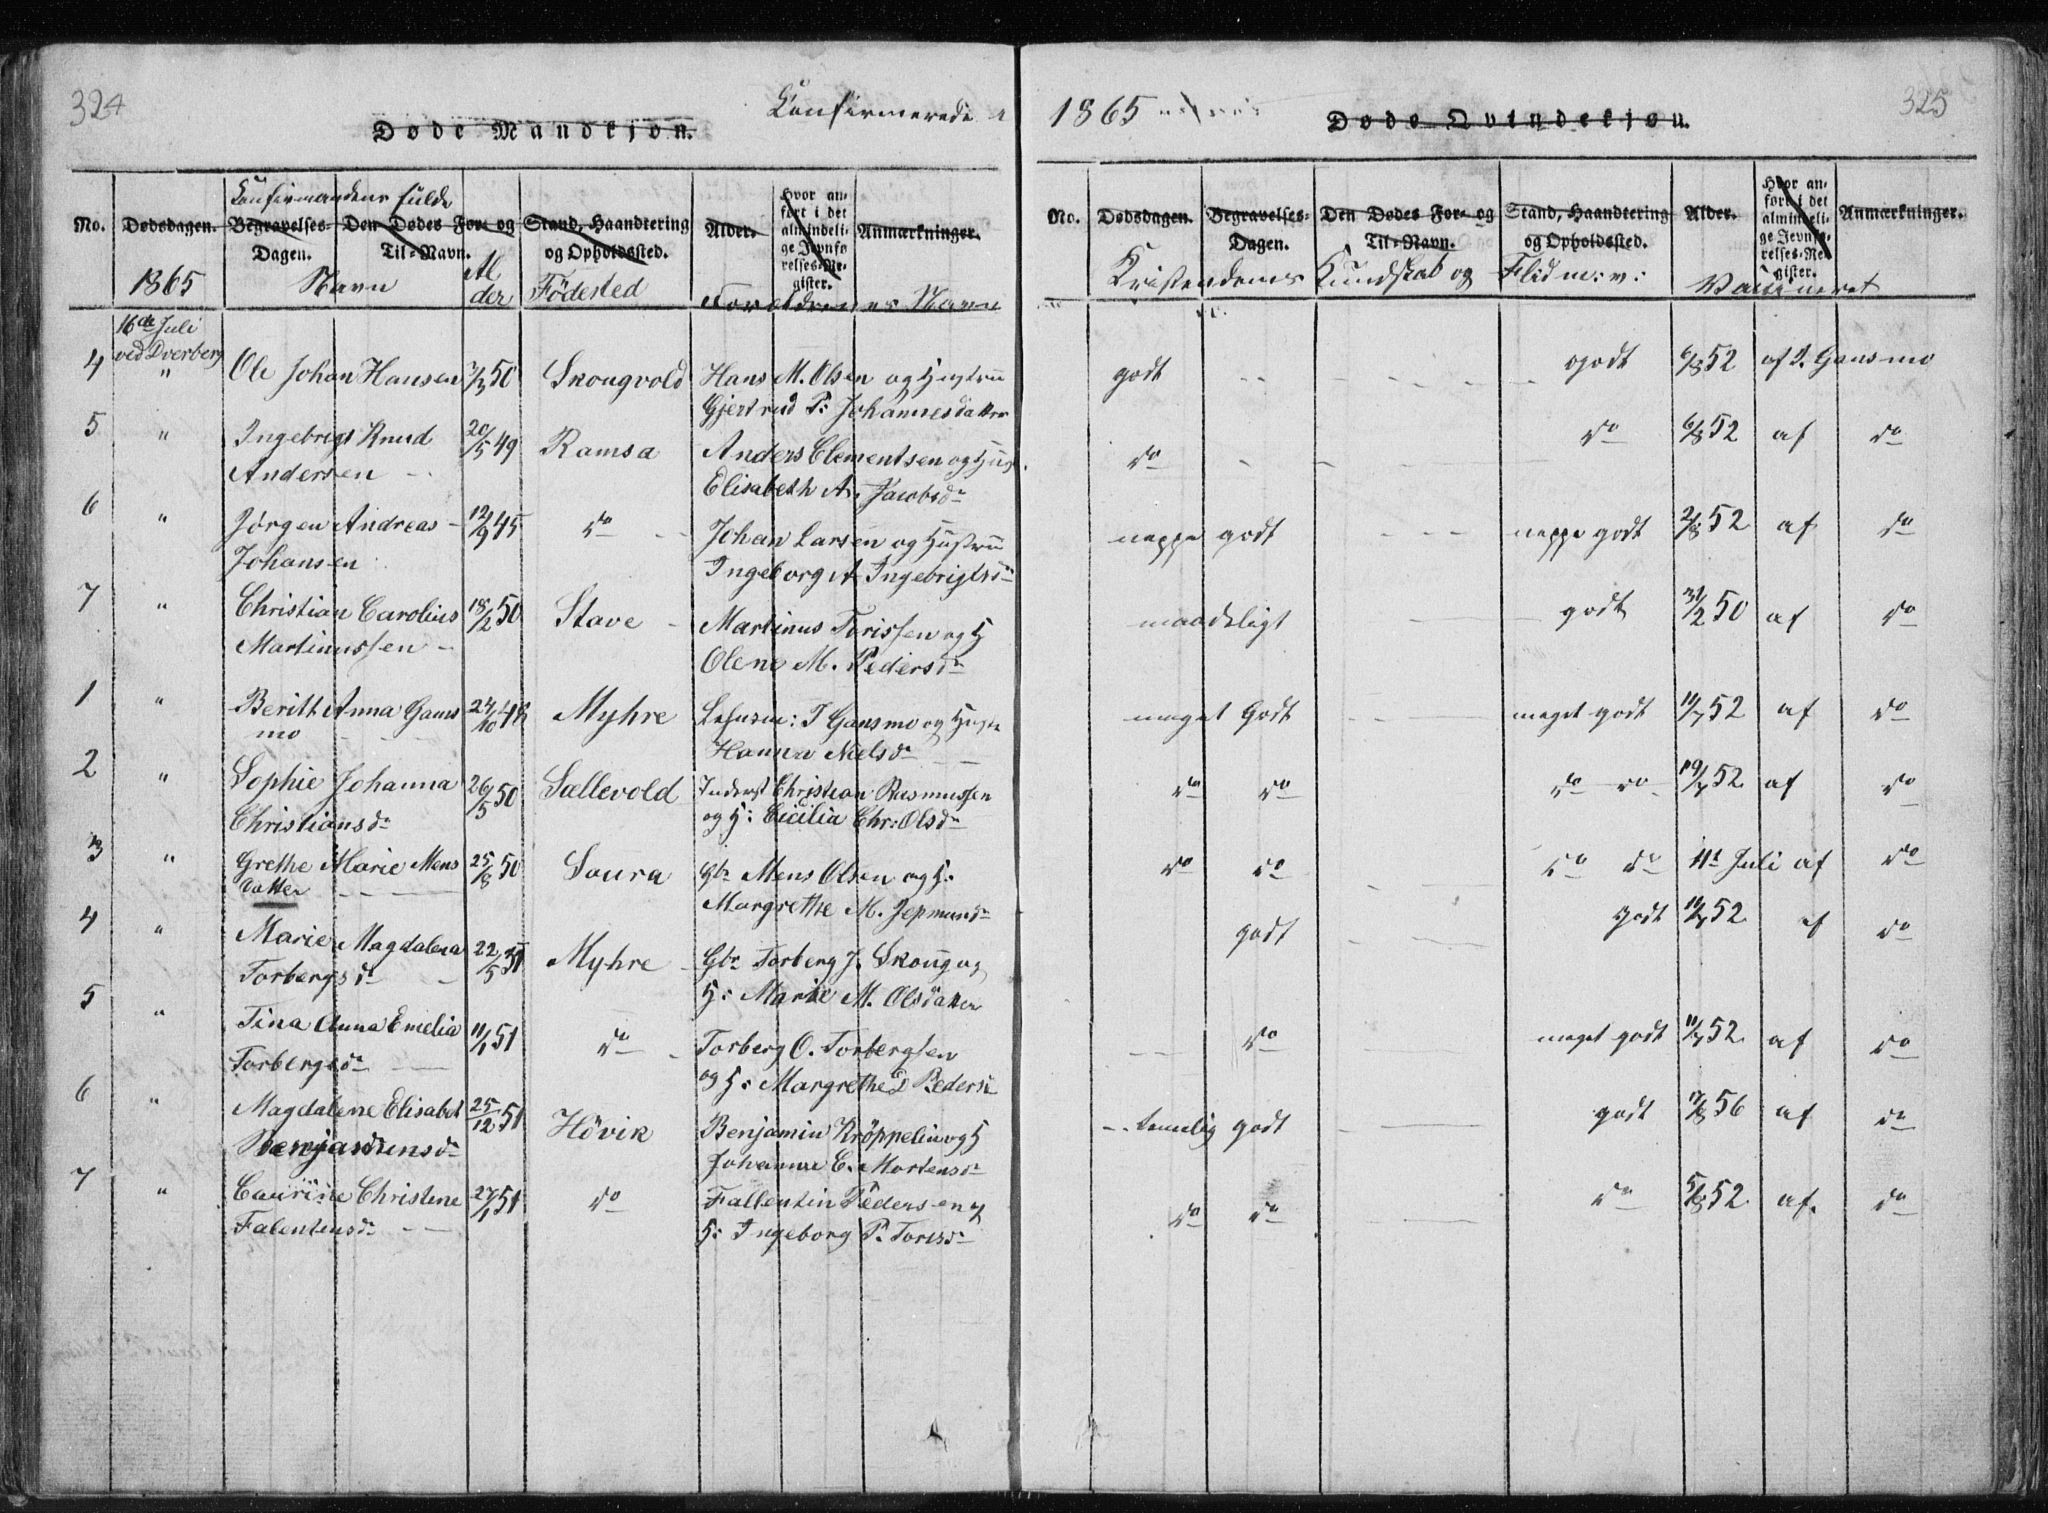 324
Konfirmerede
Døde Mandkjøn.
No. Dødsdagen. Begravelses- Dagen. Den Dødes For- og Til-Navn. Stand, Haandtering og Opholdssted. Alder. Hvor anført i det almindelige Jevnførelses-Register. Anmærkninger.
Konfirmandens fulde
1865 Navn Alder Födested Forældrenes Navn
16de Juli
ved Dverberg
4 " Ole Johan Hansen 50 Skougvold Hans M. Olsen og Hustru
Gjertrud P: Johannesdatter
5 " Ingebrigt Knud 20/5 49 Ramsa Anders Clementsen og Hus
Andersen Elisabeth A. Jacobsdr
6 " Jørgen Andreas 12/9 45 do Johan Larsen og Hustru
Johansen Ingeborg A Ingebrigtsdr
7 " Christian Carolius 18/2 50 Stave Martinus Torissen og H
Martinussen Olene M. Pedersdr
1 " Beritt Anna Gans 24/10 48 Myhre T Gansmo og
mo Hanna Nielsdr
2 " Sophie Johanna 26/5 50 Sællevold Inderst Christian Rasmussen
Christiansdr og H: Cicilia Chr: Olsdr
3 " Grethe Marie Mens 25/8 50 Soura Gbr Mens Olsen og H.
datter Margrethe M. Jepmundr
4 " Marie Magdalena 22/5 51 Myhre Gbr Torberg J. Skoug og
Torbergsdr H: Marie M. Olsdatter
5 " Tina Anna Emelia 11/1 51 do Torberg O. Torbergsen
Torbergsdr og H: Margrethe Peders
6 " Magdalene Elisabet 25/12 51 Hövik Benjamin Kröppelin og H
Benjaminsdr Johanne E. Mortensdr
7 " Laurine Christene 27/1 51 do Fallentin Pedersen og
Falentensdr H: Ingeborg P. Torisdr
1865
325
Døde Qvindekjøn.
No. Dødsdagen. Begravelses- Dagen. Den Dødes For- og Til-Navn. Stand, Haandtering og Opholdssted. Alder. Hvor anført i det almindelige Jevnførelses-Register. Anmærkninger.
Kristendoms Kundskab og Flid m: v: Vaccineret
godt godt 6/8 52 af J. Gansmo
do do 6/8 52 af do
neppe godt neppe godt 2/8 52 af do
maadeligt godt 50 af do
meget Godt meget godt 11/7 52 af do
do do do do 19/7 52 af do
do do do do 11t Juli af do
godt Godt 52 af do
do meget godt 11/7 52 af do
temelig godt godt 56 af do
do do do 5/8 52 af. do